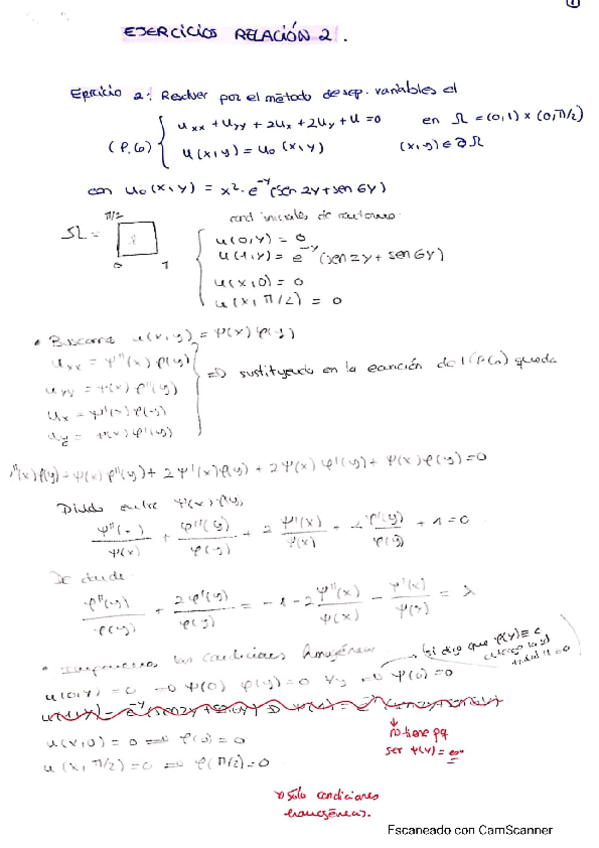 1
EJERCICIOS RELACIÓN 2.
Ejercicio 2: Resolver por el método de sep. variables el
(P.G) { u_xx + u_yy + 2u_x + 2u_y + u = 0 en Ω = (0,1) × (0,π/2)
u(x,y) = u₀(x,y) (x,y) ∈ ∂Ω
con u₀(x,y) = x² · e^-y (sen 2y + sen 6y)
cond iniciales de contorno
π/2
Ω =
0 1
u(0,y) = 0
u(1,y) = e^-y (sen 2y + sen 6y)
u(x,0) = 0
u(x,π/2) = 0
• Buscamos u(x,y) = Ψ(x) φ(y)
u_xx = Ψ''(x) φ(y)
u_yy = Ψ(x) φ''(y)
u_x = Ψ'(x) φ(y)
u_y = Ψ(x) φ'(y)
=> sustituyendo en la ecuación de queda
Ψ''(x) φ(y) + Ψ(x) φ''(y) + 2Ψ'(x) φ(y) + 2Ψ(x) φ'(y) + Ψ(x) φ(y) = 0
Divido entre Ψ(x) φ(y)
Ψ''(x)/Ψ(x) + φ''(y)/φ(y) + 2 Ψ'(x)/Ψ(x) + 2 φ'(y)/φ(y) + 1 = 0
De donde
φ''(y)/φ(y) + 2φ'(y)/φ(y) = -1 - 2 Ψ''(x)/Ψ(x) - Ψ'(x)/Ψ(x) = λ
• Imponemos las condiciones homogéneas
si digo que φ(y) ≡ c
u(0,y) = 0 => Ψ(0) φ(y) = 0 ∀y => Ψ(0) = 0
no tiene pq
ser φ(y) =
u(x,0) = 0 => φ(0) = 0
u(x,π/2) = 0 => φ(π/2) = 0
Sólo condiciones
homogéneas.
Escaneado con CamScanner